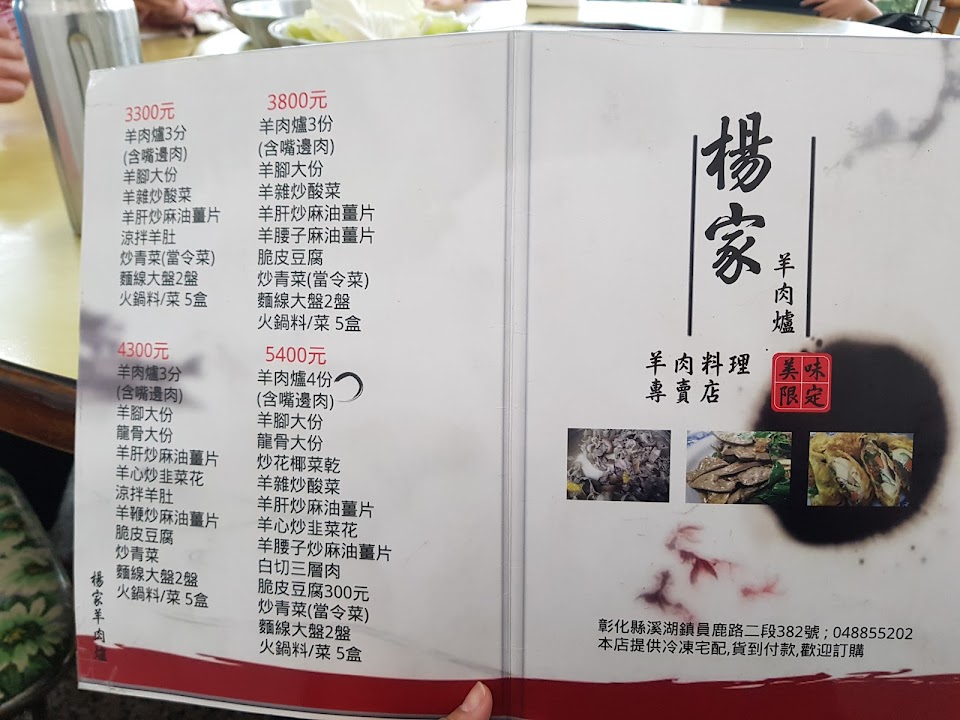 3300元
羊肉爐3分
(含嘴邊肉)
羊腳大份
羊雜炒酸菜
羊肝炒麻油薑片
涼拌羊肚
炒青菜(當令菜)
麵線大盤2盤
火鍋料/菜 5盒
3800元
羊肉爐3份
(含嘴邊肉)
羊腳大份
羊雜炒酸菜
羊肝炒麻油薑片
羊腰子麻油薑片
脆皮豆腐
炒青菜(當令菜)
麵線大盤2盤
火鍋料/菜 5盒
4300元
羊肉爐3分
(含嘴邊肉)
羊腳大份
龍骨大份
羊肝炒麻油薑片
羊心炒韭菜花
涼拌羊肚
羊鞭炒麻油薑片
脆皮豆腐
炒青菜
麵線大盤2盤
火鍋料/菜 5盒
5400元
羊肉爐4份
(含嘴邊肉)
羊腳大份
龍骨大份
炒花椰菜乾
羊雜炒酸菜
羊肝炒麻油薑片
羊心炒韭菜花
羊腰子炒麻油薑片
白切三層肉
脆皮豆腐300元
炒青菜(當令菜)
麵線大盤2盤
火鍋料/菜 5盒
楊家羊肉爐
楊家
羊肉爐
羊肉料理
專賣店
美味
限定
彰化縣溪湖鎮員鹿路二段382號 ; 048855202
本店提供冷凍宅配,貨到付款,歡迎訂購